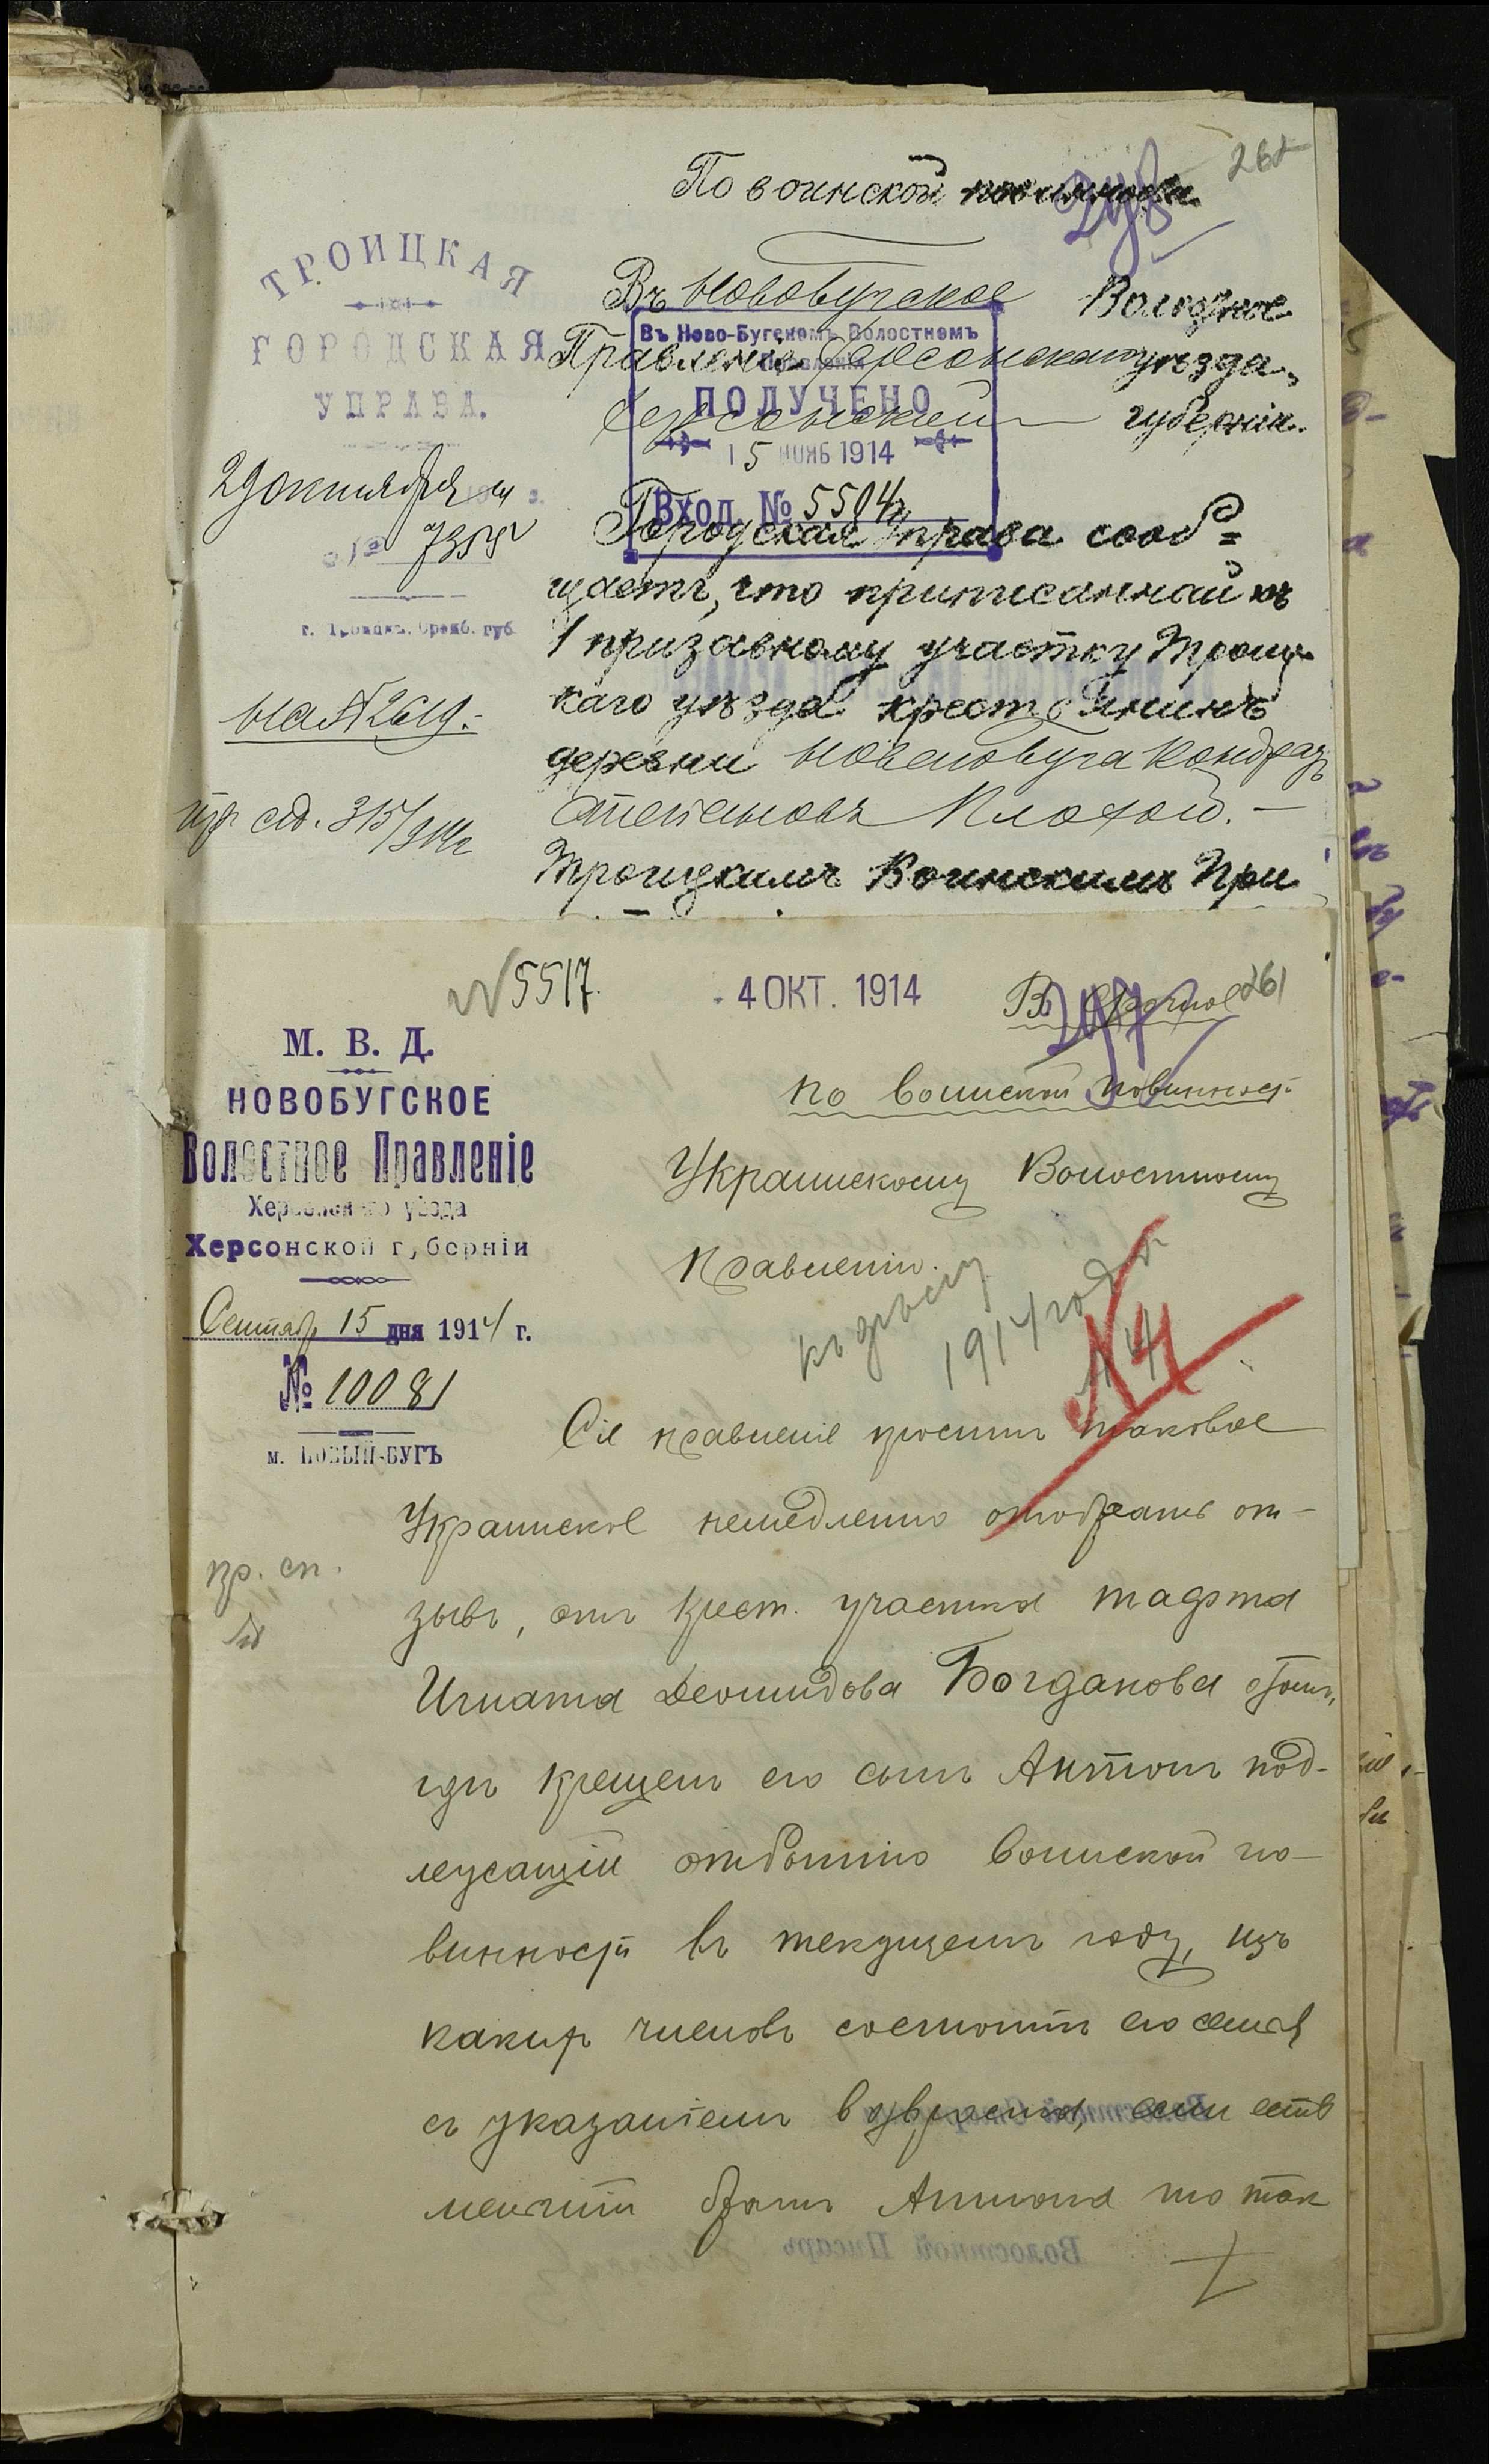 По воинской повинности
248
262
ТРОИЦКАЯ
ГОРОДСКАЯ
УПРАВА.
29 октября
7358
г. Троицкъ, Оренб. губ.
на № 2619.
Въ Новобугское Волостное
Правленіе Херсонскаго уѣзда,
Херсонской губерніи.
Въ Ново-Бугскомъ Волостномъ
Правленіи
ПОЛУЧЕНО
15 НОЯБ 1914
Вход. № 5504
Городская управа сооб=
щаетъ, что приписанный къ
1 призывному участку Троиц-
каго уѣзда крестьянинъ
деревни Новаго Буга Кондратъ
Степановъ Плохой. —
Троицкимъ Воинскимъ При
№ 5517.
4 ОКТ. 1914
Въ Срочное
247
261
М. В. Д.
НОВОБУГСКОЕ
Волостное Правленіе
Херсонскаго уѣзда
Херсонской губерніи
Сентяб 15 дня 1914 г.
№ 10081
м. НОВЫЙ-БУГЪ
пр. сп.
по воинской повинности
Украинскому Волостному
Правленію.
1914 года
14
Сіе правленіе проситъ таковое
Украинское немедленно отобрать от-
зывъ, отъ крест. участка
Игната Леонидова Богданова о томъ,
гдѣ крещенъ его сынъ Антонъ под-
лежащій отбытію воинской по-
винности въ текущемъ году, изъ
какихъ членовъ состоитъ его семья
съ указаніемъ возраста, если есть
меншій братъ Антона то так